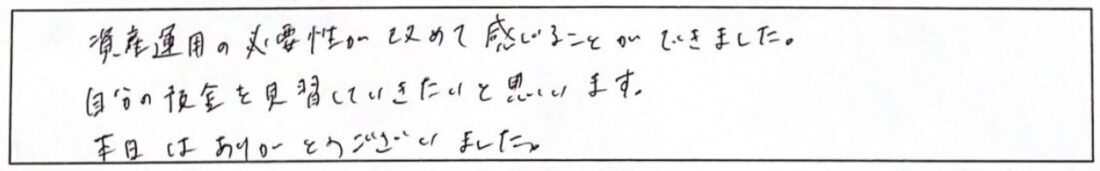 資産運用の必要性が改めて感じることができました。
自分の預金を見習していきたいと思います。
本日はありがとうございました。